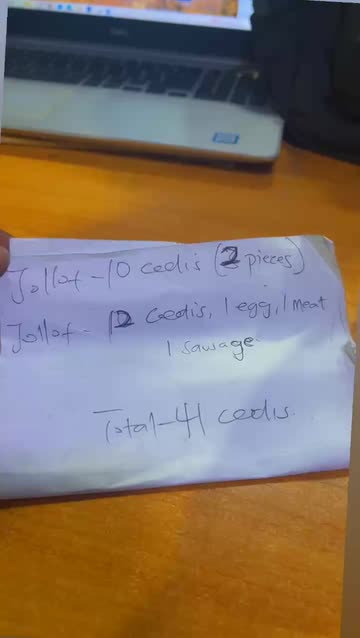 Jollof - 10 cedis (2 pieces)
Jollof - 12 Cedis, 1 egg, 1 meat
1 sausage
Total - 41 cedis